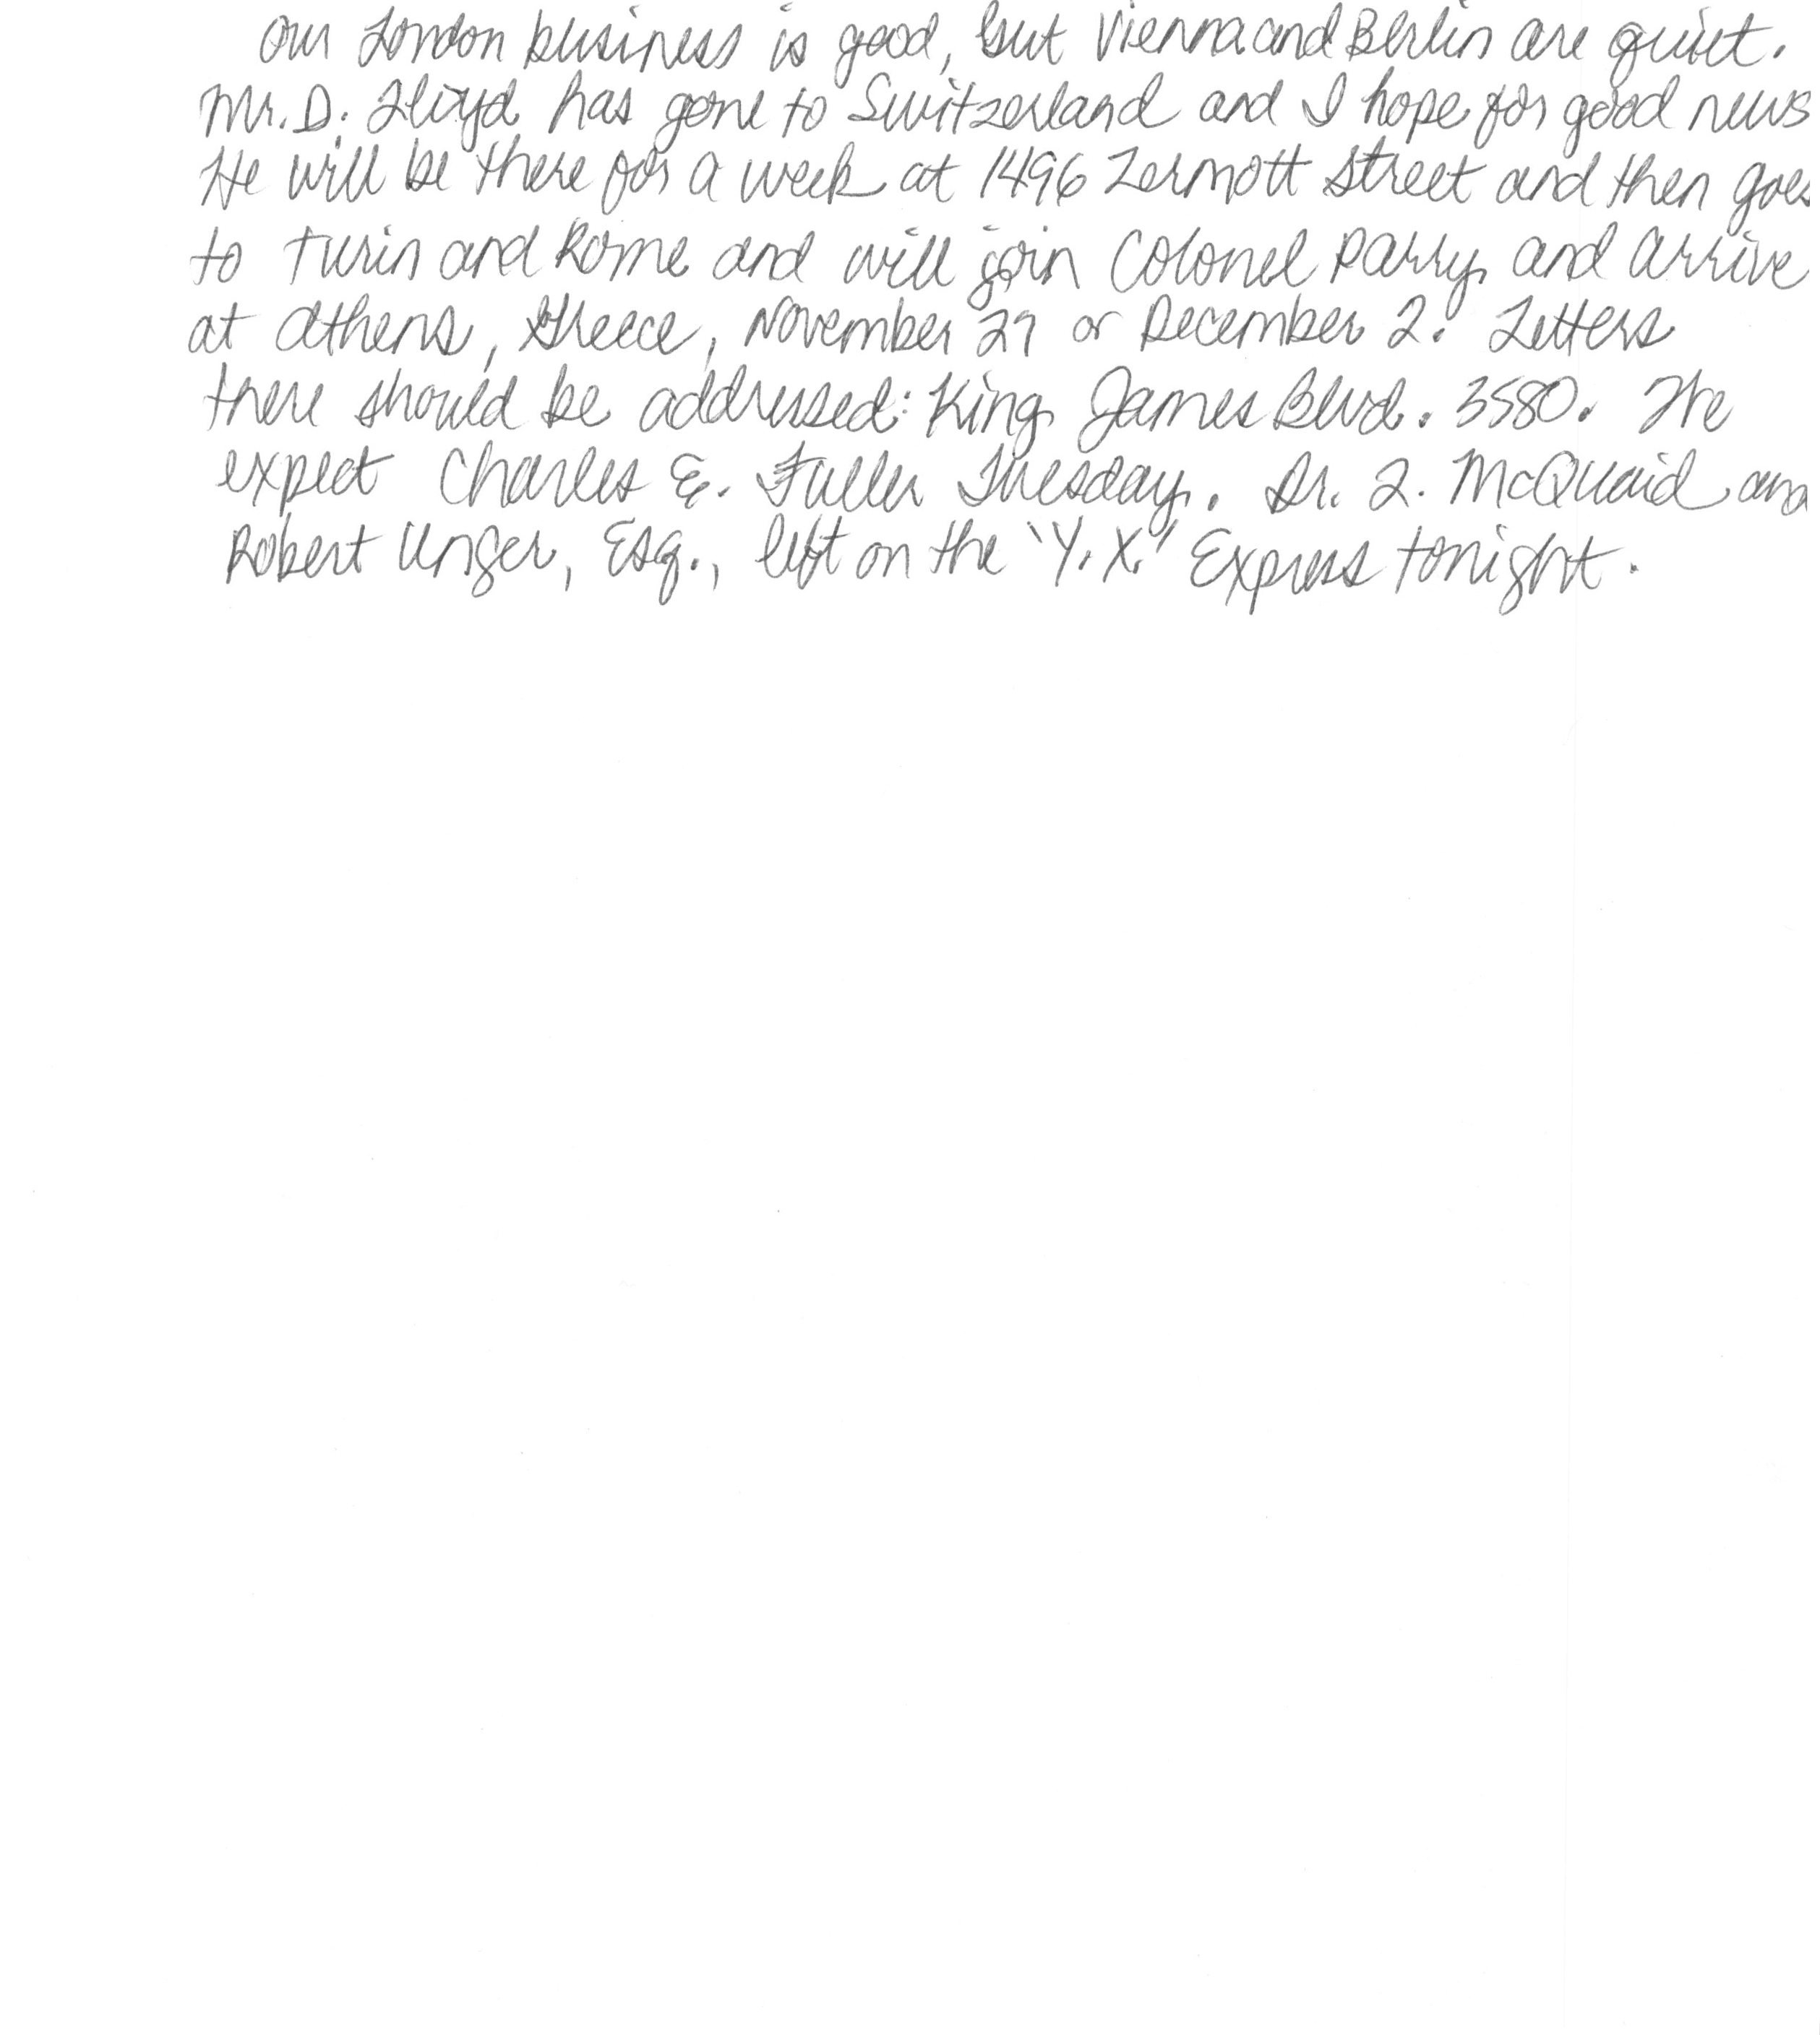 Our London business is good, but Vienna and Berlin are quiet.
Mr. D. Lloyd has gone to Switzerland and I hope for good news
He will be there for a week at 1496 Zermott Street and then goes
to Turin and Rome and will join Colonel Parry and arrive
at Athens, Greece, November 27 or December 2. Letters
there should be addressed: King James Blvd. 3580. We
expect Charles E. Fuller Tuesday. Dr. L. McQuaid and
Robert Unger, Esq., left on the "Y.X." Express tonight.